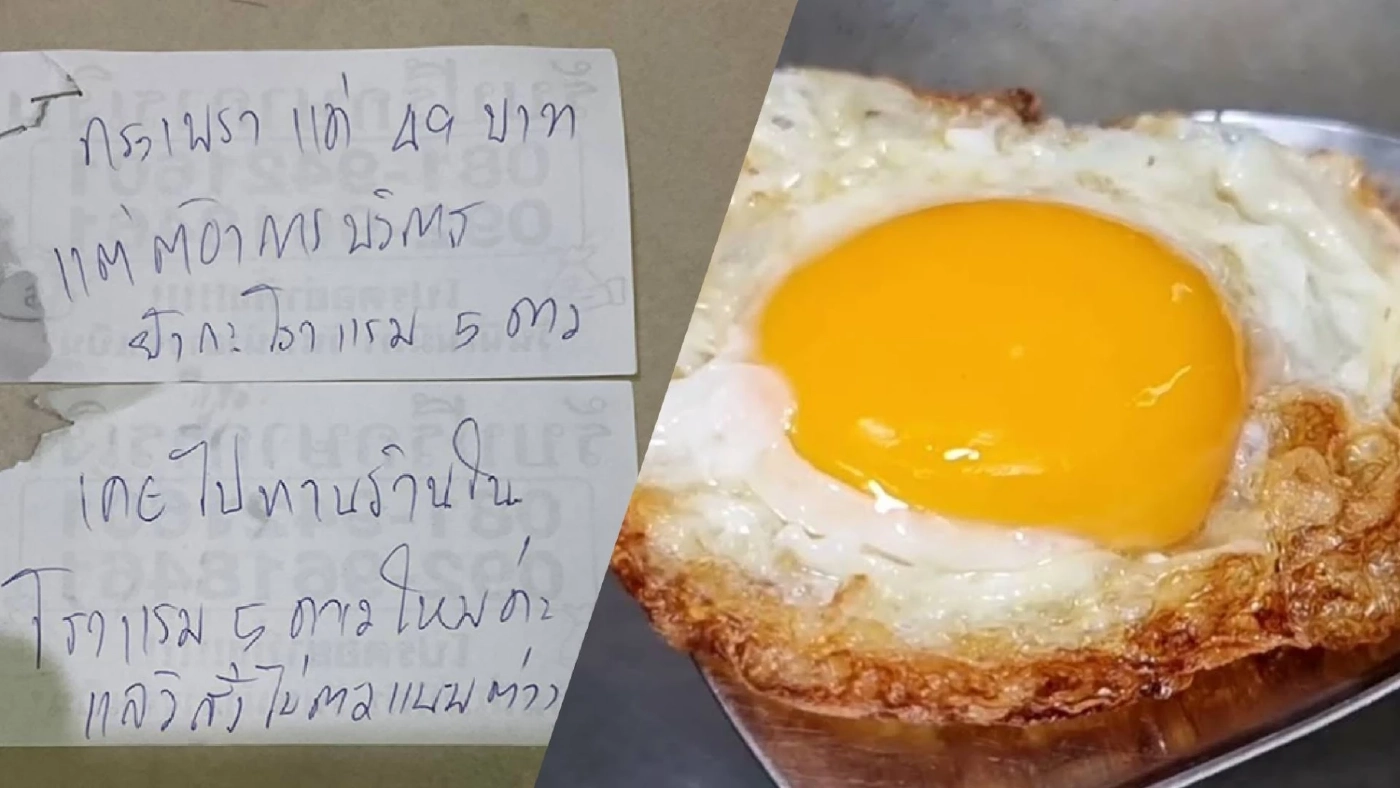 กระเพรา แค่ 49 บาท
แต่ต้องการบริการ
ยังกะโรงแรม 5 ดาว
เคยไปทานร้านใน
โรงแรม 5 ดาวไหมค่ะ
แล้วสั่งไข่ดาวแบบต่าง